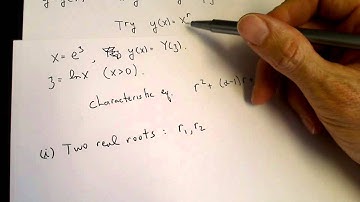 Try y(x) = x^r
x = e^z, y(x) = Y(z).
z = ln x (x > 0).
characteristic eq. r² + (α-1)r +
(i) Two real roots : r₁, r₂